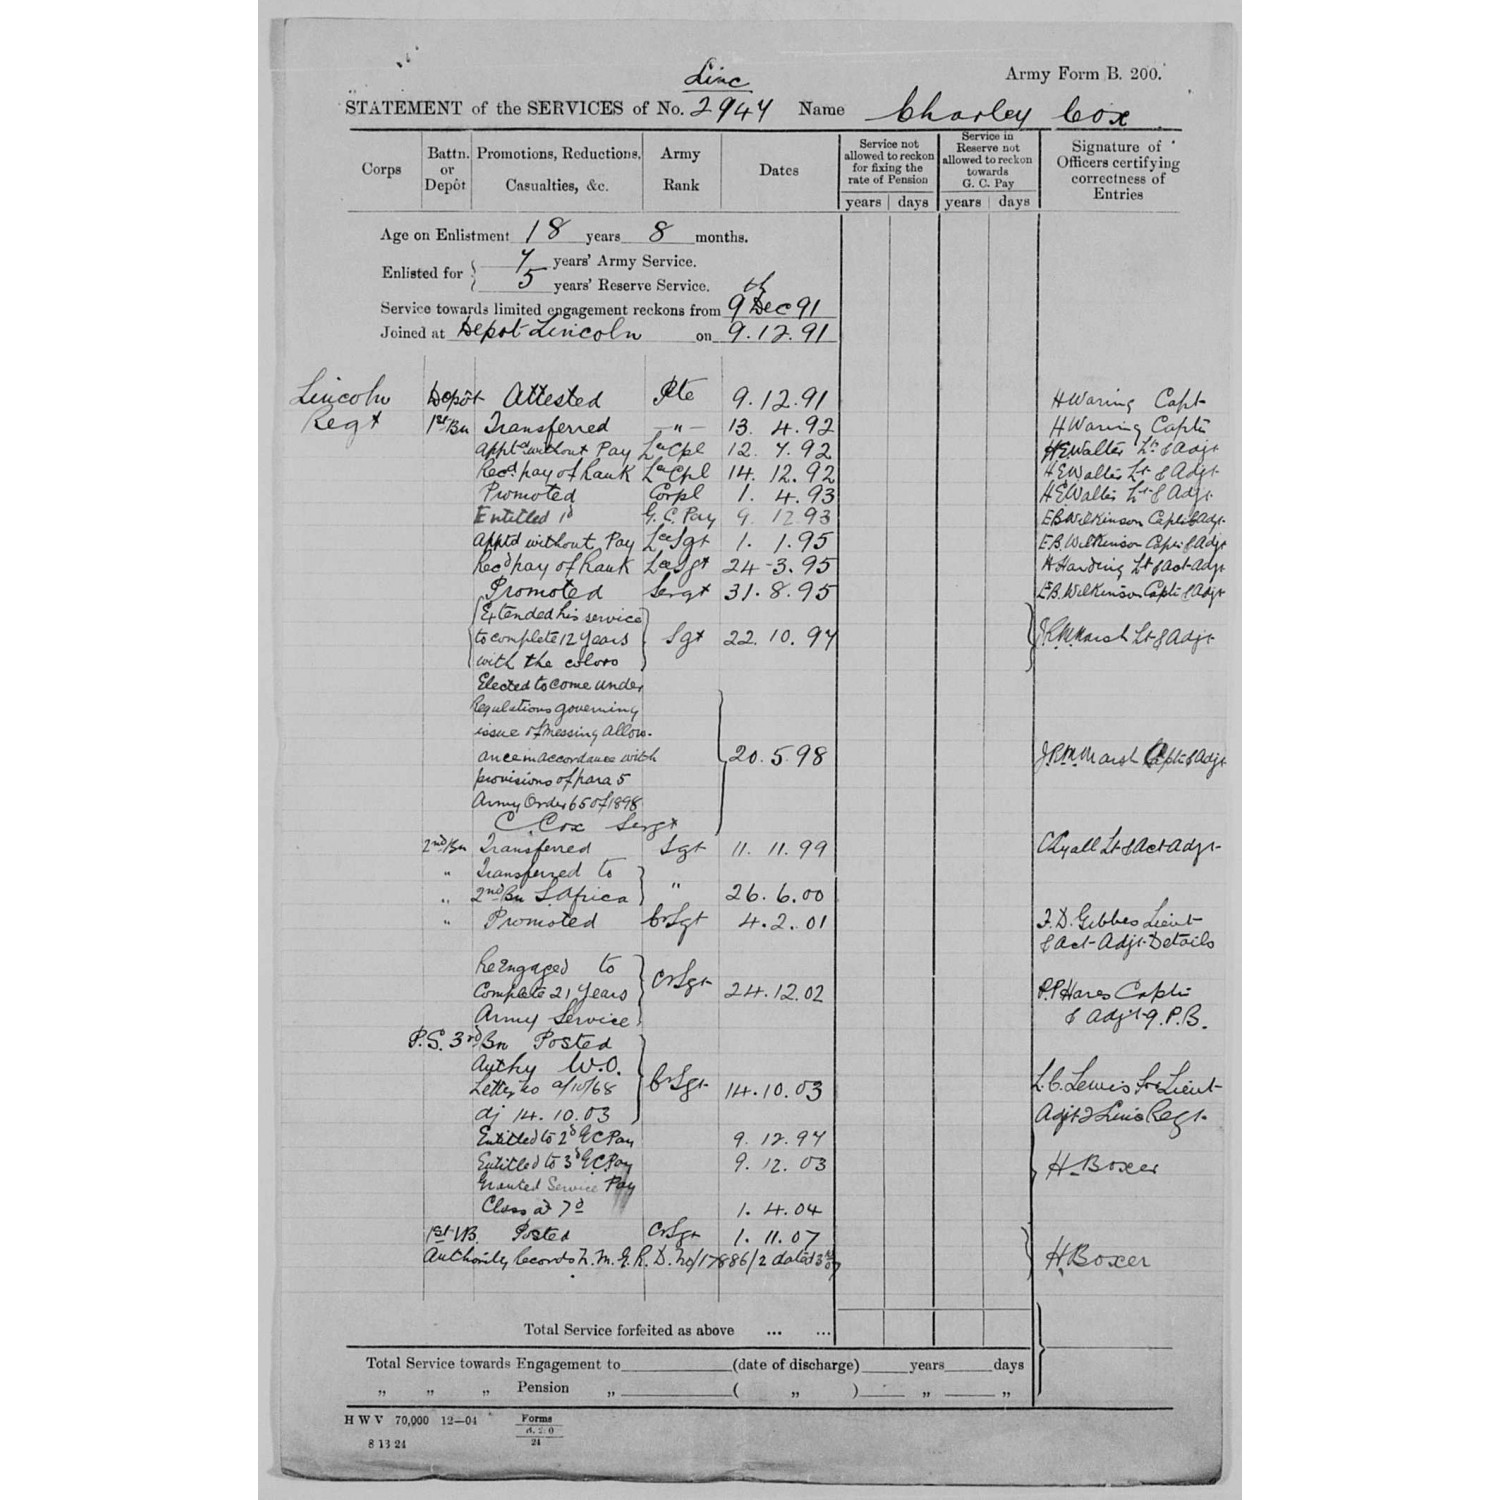 Army Form B. 200.
Linc
STATEMENT of the SERVICES of No. 2947 Name Charley Cox
Corps Battn. or Depôt Promotions, Reductions, Casualties, &c. Army Rank Dates Service not allowed to reckon for fixing the rate of Pension Service in Reserve not allowed to reckon towards G. C. Pay Signature of Officers certifying correctness of Entries
years days years days
Age on Enlistment 18 years 8 months.
Enlisted for 7 years' Army Service.
5 years' Reserve Service.
Service towards limited engagement reckons from 9th Dec 91
Joined at Depot Lincoln on 9.12.91
Lincoln Depôt Attested Pte 9.12.91 H Waring Capt
Regt 1st Bn Transferred —"— 13. 4.92 H Waring Capt
Apptd without Pay Lce Cpl 12. 7.92 H E Walter Lt & Adjt
Recd pay of Rank Lce Cpl 14. 12.92 H E Walter Lt & Adjt
Promoted Corpl 1. 4.93 H E Walter Lt & Adjt
Entitled 1d G. C. Pay 9. 12.93 E B Wilkinson Capt & Adjt
Apptd without Pay Lce Sgt 1. 1.95 E. B. Wilkinson Capt & Adjt
Recd pay of Rank Lce Sgt 24-3.95 H Harding Lt & act-Adjt
Promoted Sergt 31.8.95 E B. Wilkinson Capt & Adjt
Extended his service
to complete 12 years Sgt 22.10.97 J R M Marsh Lt & Adjt
with the colors
Elected to come under
Regulations governing
issue of Messing Allow-
ance in accordance with 20.5.98 J. R. M. Marsh Capt & Adjt
provisions of para 5
Army Order 65 of 1898
C. Cox Sergt
2nd Bn Transferred Sgt 11. 11.99 C Lyall Lt & Act Adjt
" Transferred to
" 2nd Bn S. Africa " 26.6.00
" Promoted Cr Sgt 4.2.01 F. D. Gibbes Lieut
& Act-Adjt-Details
Re Engaged to
Complete 21 Years Cr Sgt 24.12.02 P. P Hares Capt
Army Service & Adjt 9. P. B.
P.S. 3rd Bn Posted
Authy W.O.
Letter no a/10/68 Cr Sgt 14.10.03 L. C. Lewis for Lieut
dj 14.10.03 Adjt 2 Linc Regt
Entitled to 2d G C Pay 9. 12.97
Entitled to 3d G. C. Pay 9. 12. 03 H. Boxer
Granted Service Pay
Class at 7d 1. 4.04
1st VB. Posted Cr Sgt 1. 11.07
Authority Records H. Boxer
Total Service forfeited as above ... ...
Total Service towards Engagement to (date of discharge) years days
„ „ „ Pension „ ( „ ) „ „
H W V 70,000 12—04 Forms
8 13 24 24